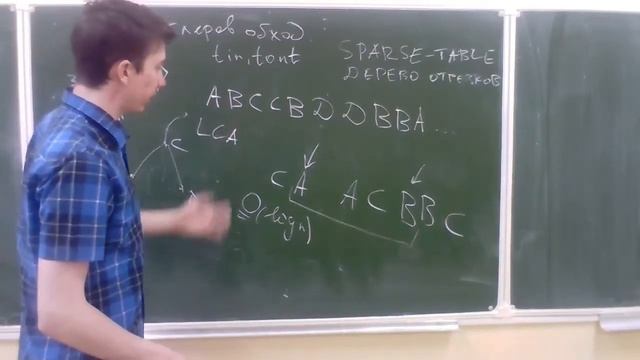 обход
tin, tout
SPARSE-TABLE
ДЕРЕВО ОТРЕЗКОВ
A B C C B D D B B A ...
C
LCA
C A
A C B B C
O(log n)